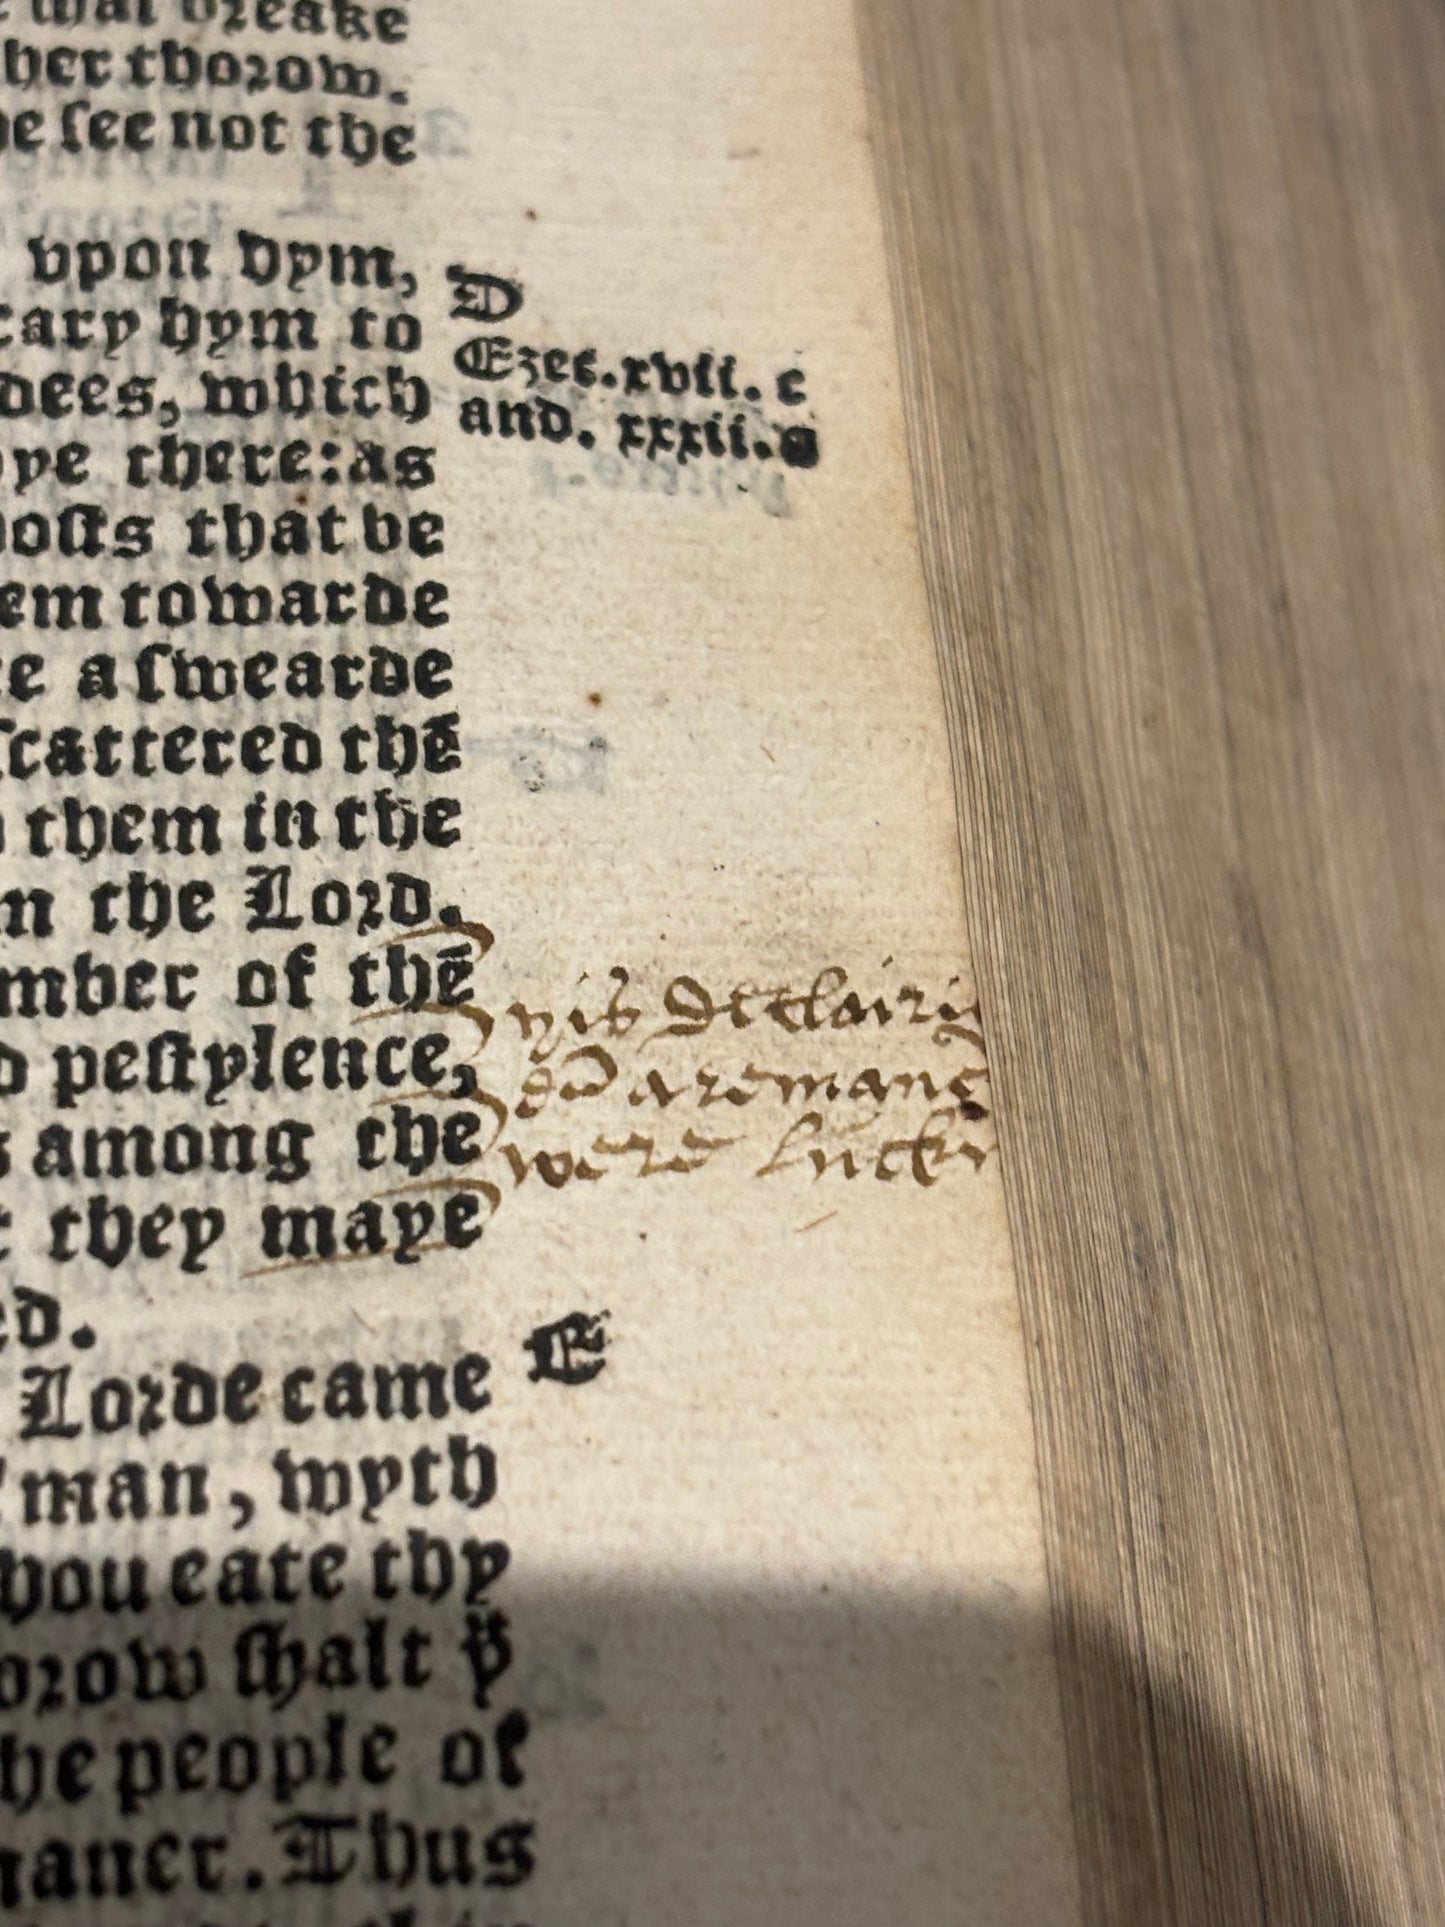 breake
her thorow.
he see not the
vpon hym,
cary hym to
dees, which
there:as
hosts that be
em towarde
a swearde
scattered thē
them in the
in the Lord.
mber of thē
pestylence,
among the
they maye
ed.
Lorde came
man, wyth
thou eate thy
orow shalt yͧ
the people of
maner. Thus
D
Ezec.xvii. c
and. xxxii.
yis declairi
a remanc
were lucky
E